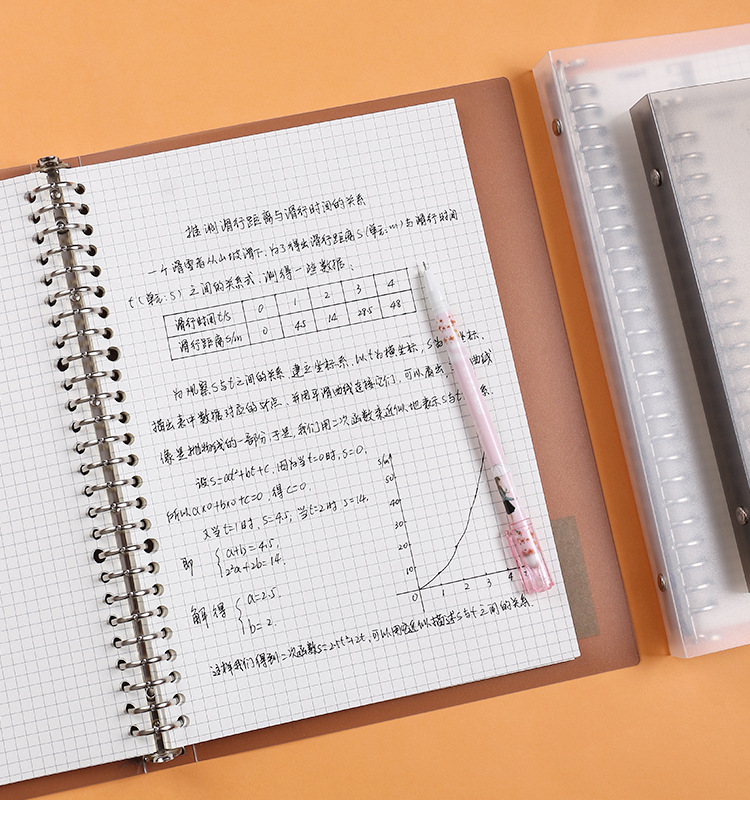 推测滑行距离与滑行时间的关系
一个滑雪者从山坡滑下，为了得出滑行距离S(单位:m)与滑行时间
t(单位:s)之间的关系式，测得一些数据:
滑行时间t/s 0 1 2 3 4
滑行距离S/m 0 4.5 14 28.5 48
为观察S与t之间的关系，建立坐标系，以t为横坐标，S为 坐标，
描出表中数据对应的 点，并用平滑曲线连接它们，可以看出， 曲线
像是抛物线的一部分，于是，我们用二次函数来近似地表示S与t 系.
设S=at²+bt+c，因为当t=0时，S=0，
所以a×0+b×0+c=0，得c=0.
又当t=1时，S=4.5，当t=2时 S=14，
即 {a+b=4.5，
2²a+2b=14.
解得 {a=2.5，
b=2.
s/m
50
40
30
20
10
0 1 2 3 4
这样我们得到二次函数S=2.5t²+2t，可以用 近似描述S与t之间的关系.